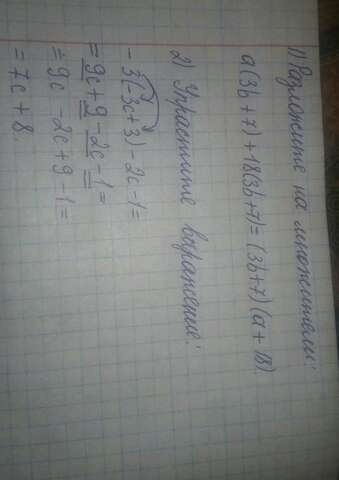 1) Разложите на множители:
a(3b+7)+18(3b+7)=(3b+7)(a+18)
2) Упрастите выражение:
-3(-3c+3)-2c-1=
=9c+9-2c-1=
=9c-2c+9-1=
=7c+8.